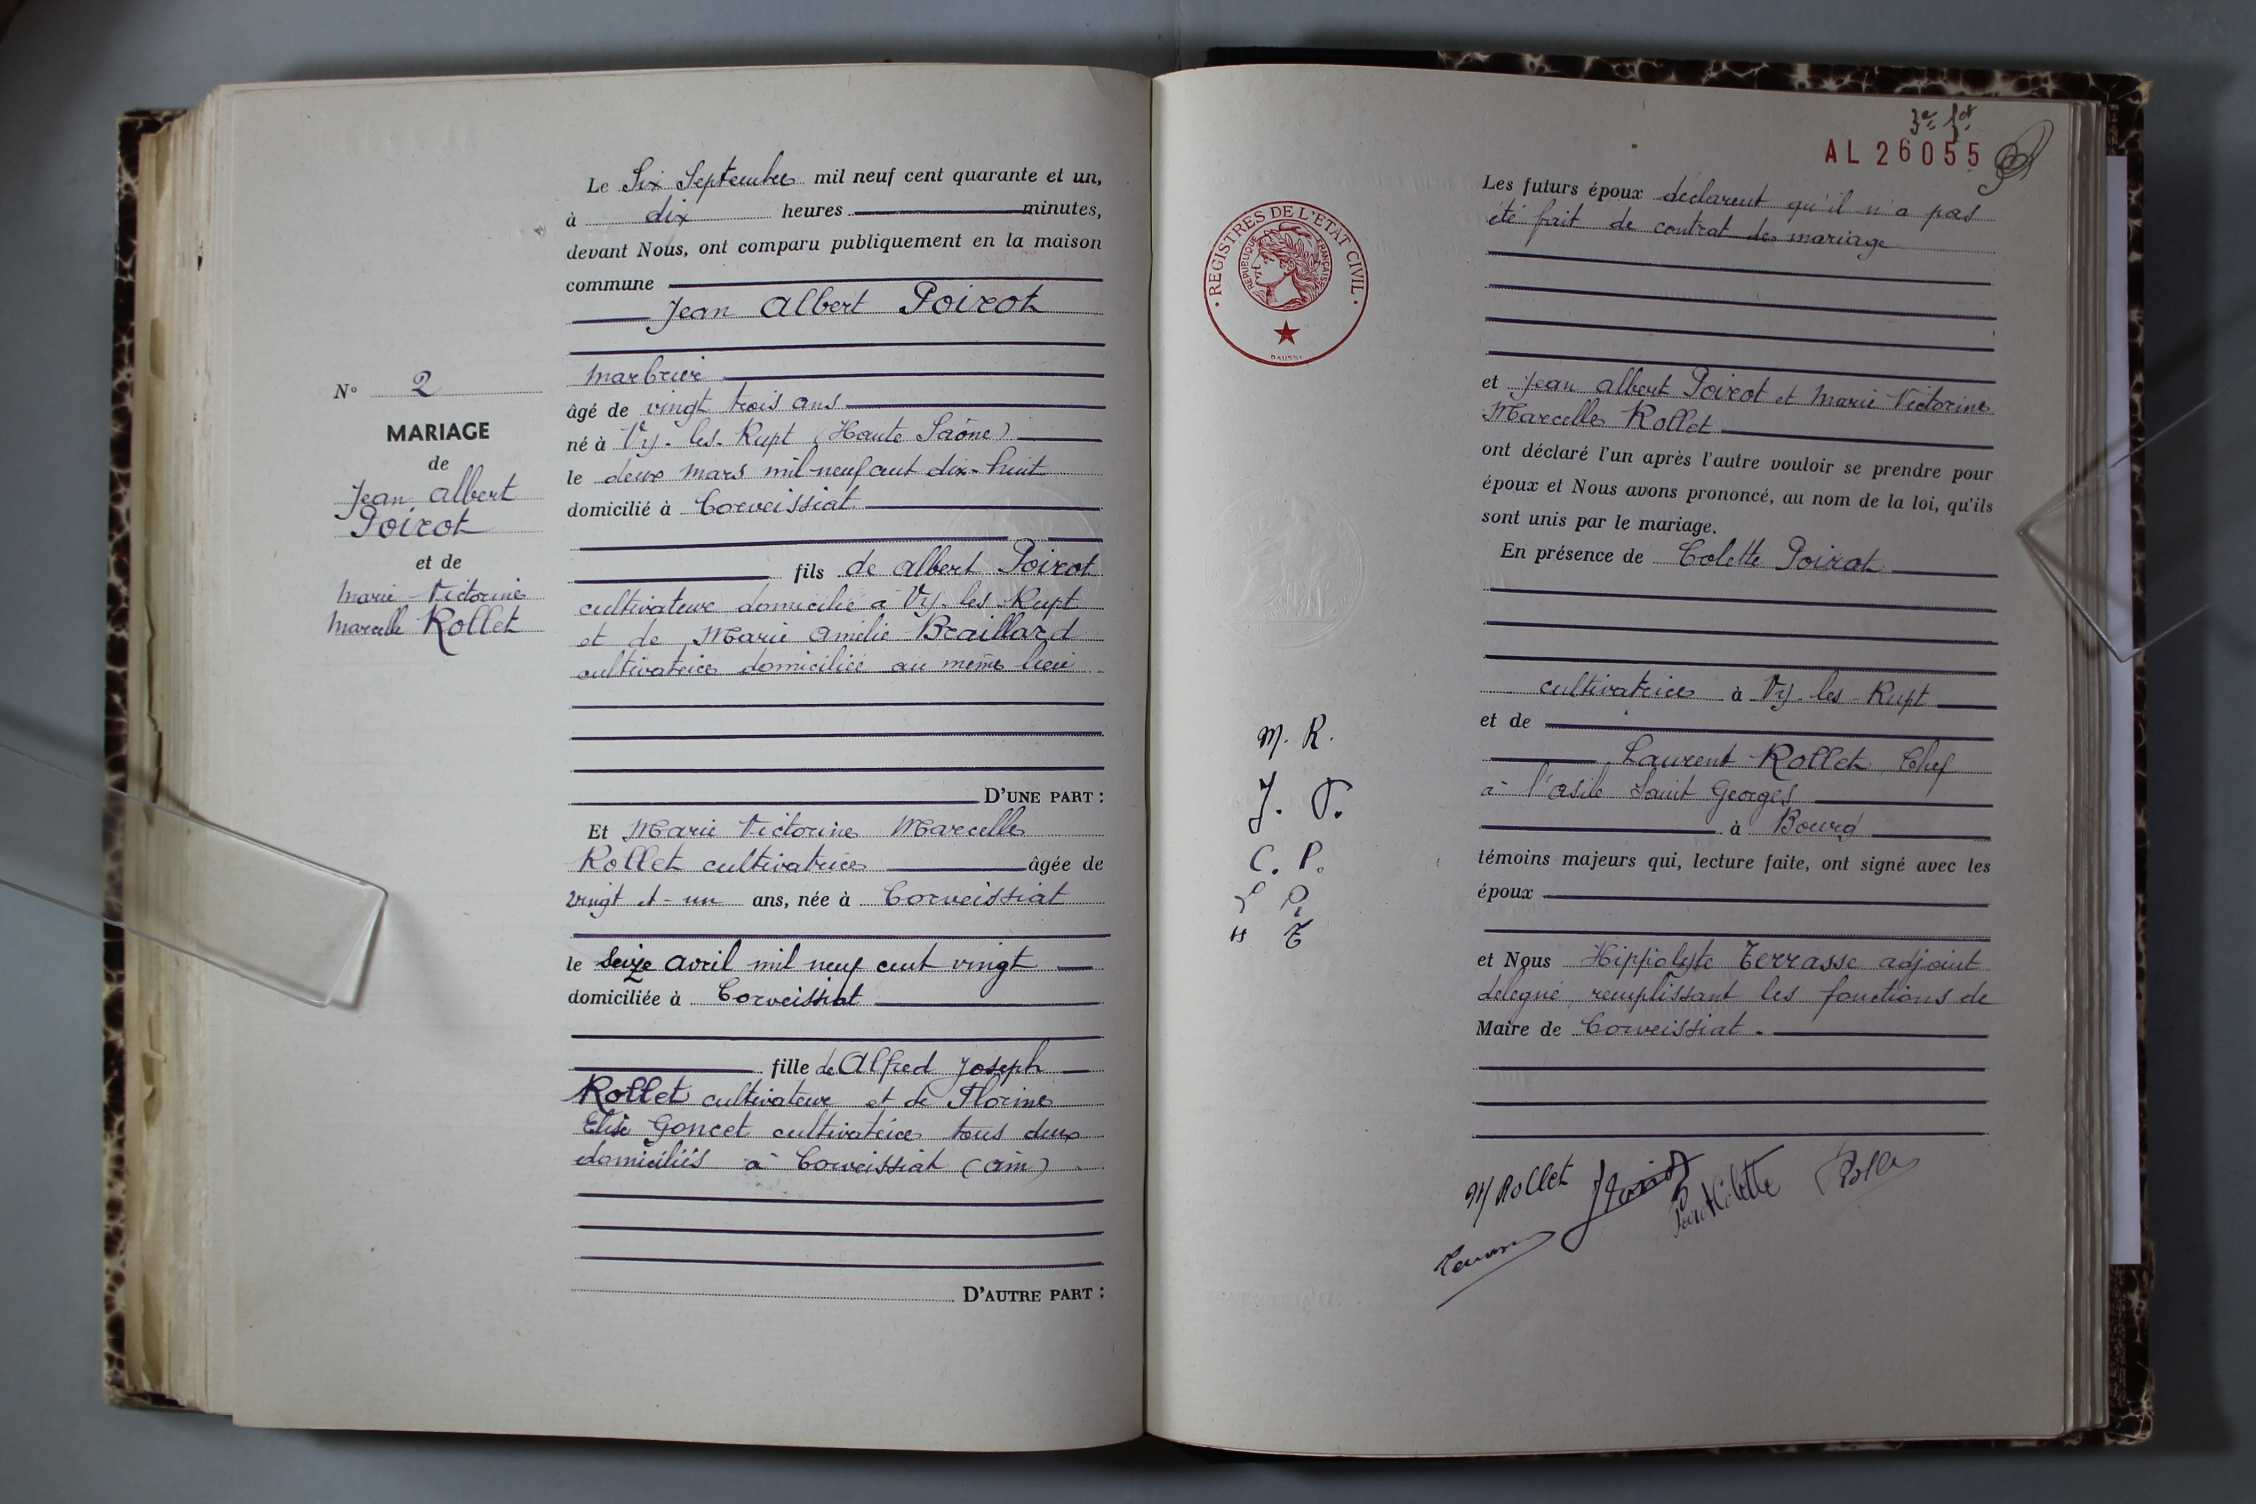 Le Six Septembre mil neuf cent quarante et un,
à dix heures minutes,
devant Nous, ont comparu publiquement en la maison
commune
Jean Albert Poirot
marbrier
âgé de vingt trois ans
né à Vy-les-Rupt (Haute Saône)
le deux mars mil neuf cent dix-huit
domicilié à Corveissiat
fils de Albert Poirot
cultivateur domicilié à Vy-les-Rupt
et de Marie Amélie Braillard
cultivatrice domiciliée au même lieu
D'UNE PART :
Et Marie Victorine Marcelle
Rollet cultivatrice âgée de
vingt et-un ans, née à Corveissiat
le seize avril mil neuf cent vingt
domiciliée à Corveissiat
fille de Alfred Joseph
Rollet cultivateur et de Florine
Elise Goncet cultivatrice tous deux
domiciliés à Corveissiat (Ain)
D'AUTRE PART :
N° 2
MARIAGE
de
Jean Albert
Poirot
et de
Marie Victorine
Marcelle Rollet
3e fet
AL 26055
REGISTRES DE L'ETAT CIVIL
REPUBLIQUE FRANÇAISE
DAUSSY
Les futurs époux déclarent qu'il n'a pas
été fait de contrat de mariage
et Jean Albert Poirot et Marie Victorine
Marcelle Rollet
ont déclaré l'un après l'autre vouloir se prendre pour
époux et Nous avons prononcé, au nom de la loi, qu'ils
sont unis par le mariage.
En présence de Colette Poirot
cultivatrice à Vy-les-Rupt
et de
Laurent Rollet, Chef
à l'asile Saint Georges
à Bourg
témoins majeurs qui, lecture faite, ont signé avec les
époux
et Nous Hippolyte Terrasse adjoint
délégué, remplissant les fonctions de
Maire de Corveissiat.
M. R.
J. P.
C. P.
H T
M Rollet
J Poirot
Poirot Colette